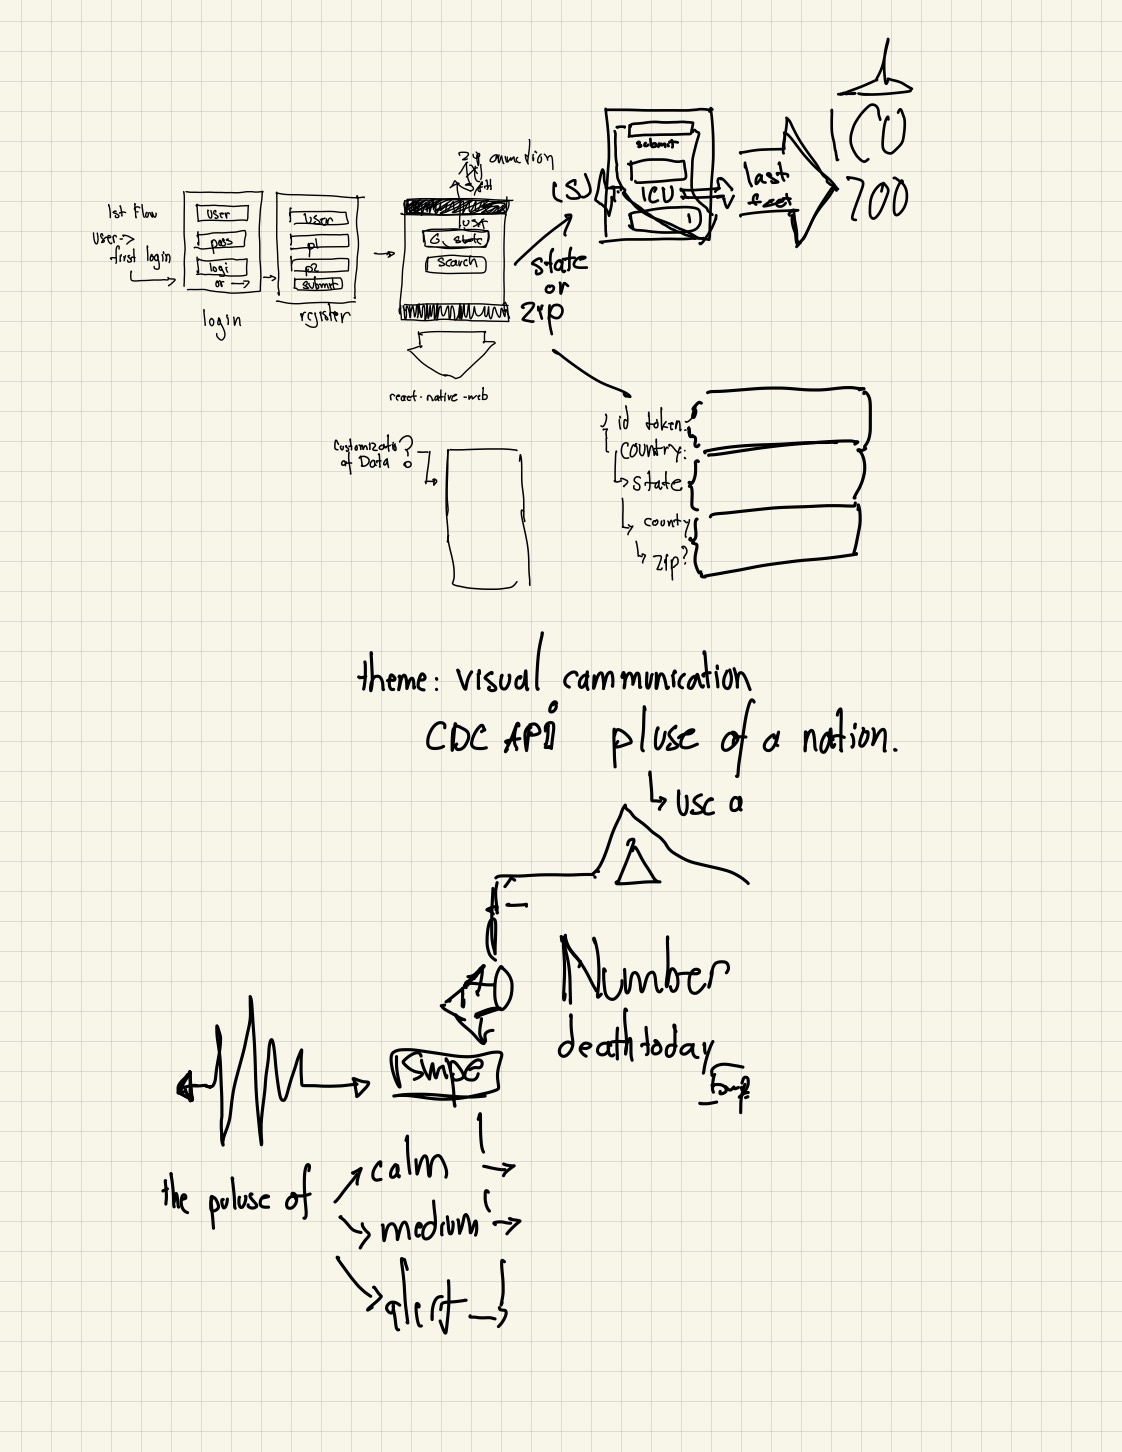 1st Flow
user->
first login
user
pass
logi
or
login
user
p1
p2
submit
register
animation
USA
state
search
react-native-web
state
or
zip
submit
ICU
last
feet
ICU
700
Customizatio
of Data ?
id token:
country:
state
county
zip?
theme: visual cammunication
CDC API pluse of a nation.
use a
Number
death today
swipe
the puluse of
calm
medium
alert